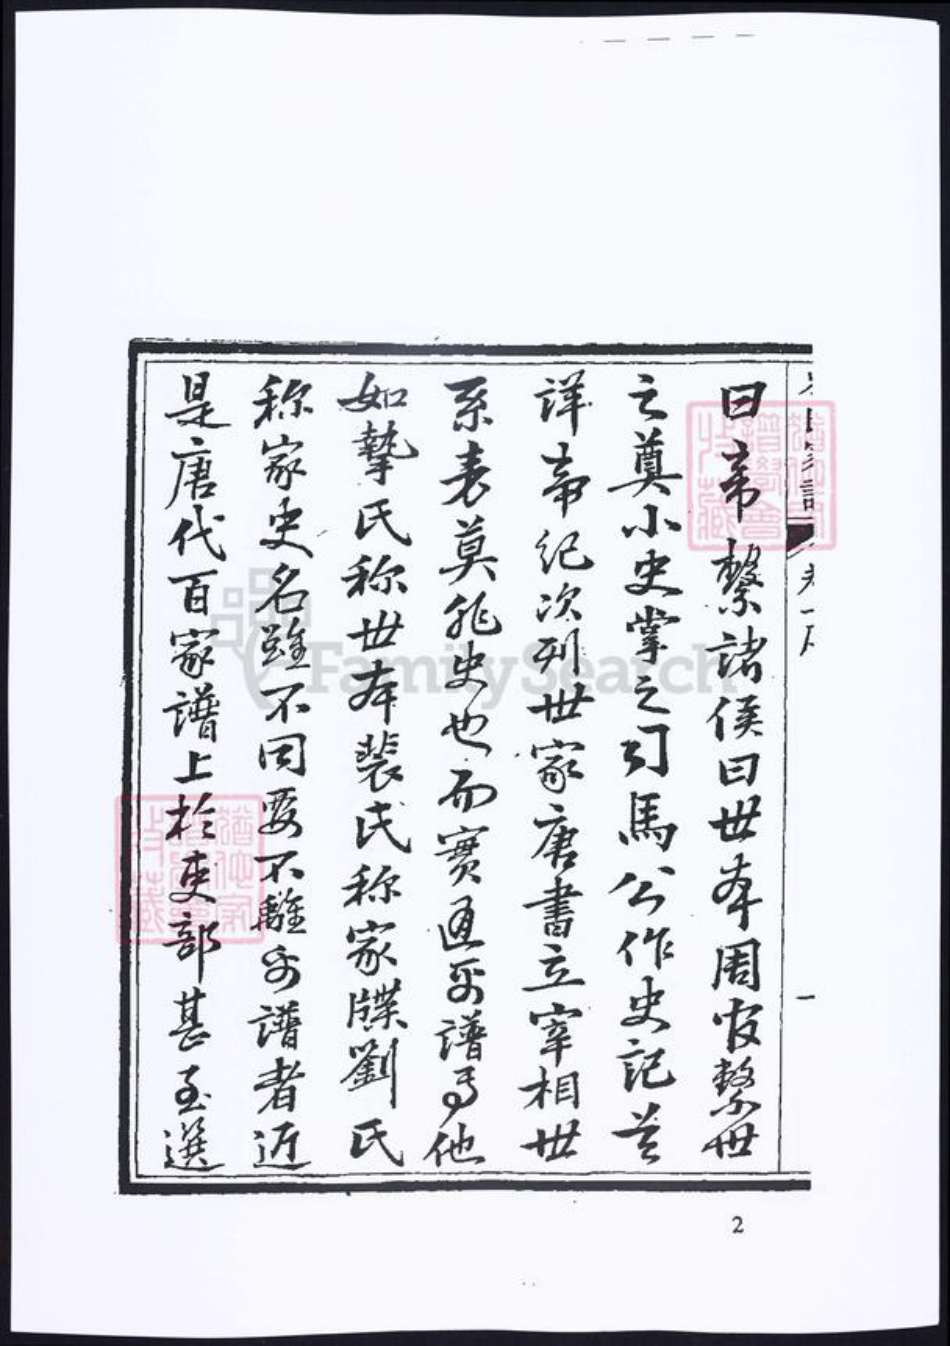 曰帝繫諸侯曰世本周官繫世
之奠小史掌之司馬公作史記首
詳帝紀次列世家唐書立宰相世
系表莫非史也而實通於譜焉他
如摯氏称世本裴氏称家牒劉氏
称家史名雖不同要不離乎譜者近
是唐代百家譜上於吏部甚至選
一
2
FamilySearch